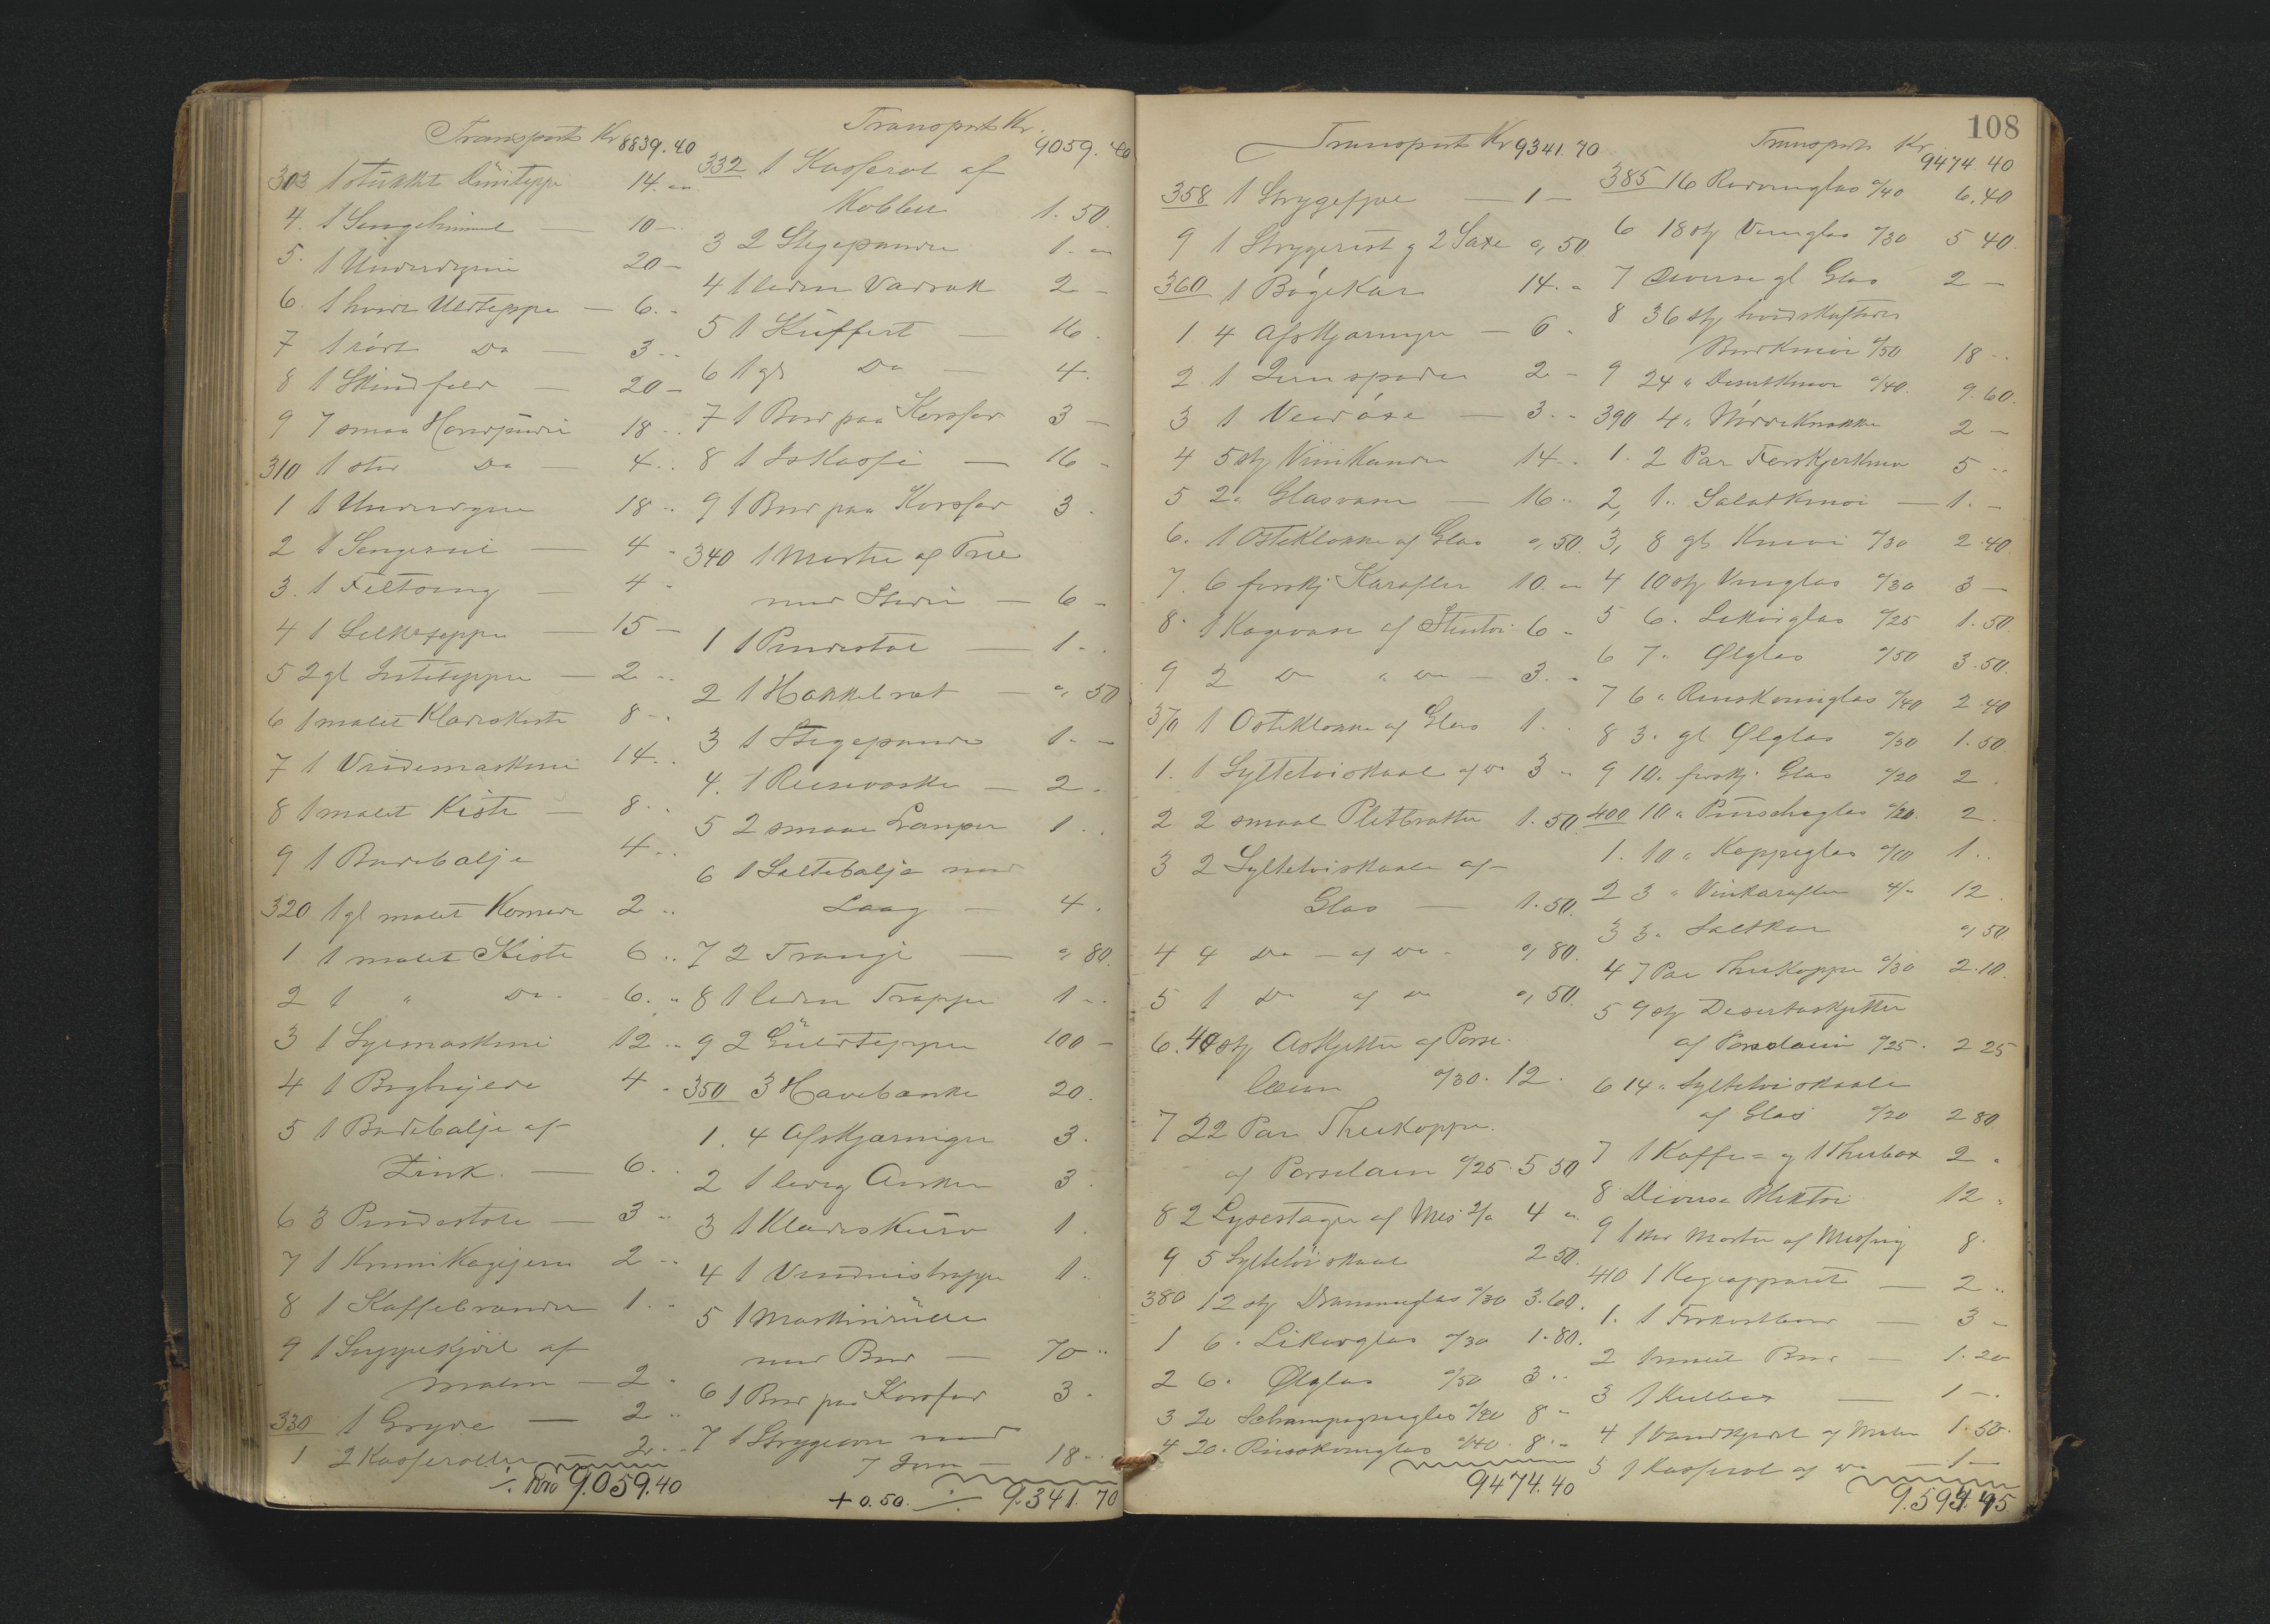 Transport Kr 8839.40
303 1 stukket Duntæppe 14. "
4. 1 Sengehimmel — 10 —
5. 1 Underdyne 20 —
6. 1 hvidt Uldteppe — 6. "
7 1 rødt Do — 3 "
8 1 Skindfeld — 20 —
9 7 smaa Hovedpuder 18 "
310 1 stor Do — 4 "
1 1 Underdyne 18 "
2 1 — 4 "
3. 1 Feltseng — 4 "
4 1 Silketeppe — 15 —
5 2 gl — 2 "
6 1 malet Klædeskiste 8 "
7 1 Vridemaskine 14 "
8 1 malet Kiste — 8 "
9 1 Badebalje 4 "
320 1 gl malet Komode 2 "
1 1 malet Kiste 6 "
2 1 " Do. 6. "
3 1 Symaskine 12 "
4 1 Boghylde 4 "
5 1 Badebalje af
Zink. — 6 "
6 3 Pindestole — 3 "
7 1 Krumkagejern 2 "
8 1 Kaffebrænder 1 "
9 1 Suppekjedel af
Malm — 2 "
330 1 Gryde — 2 "
1 2 Kasseroller — 2 "
Kro 9.059.40
Transport Kr.
9059.40
332 1 Kasserol af
Kobber 1.50
3 2 Stegepander 1. "
4 1 liden Vadsæk 2 —
5 1 Kuffert — 16
6 1 gl Do — 4.
7 1 Bord paa Korsfod 3 —
8 1 Iskasse — 16 —
9 1 Bord paa Korsfod 3.
340 1 Morter af Træ
med Støder — 6 —
1 1 Pindestol — 1 "
2 1 — " 50
3 1 Stegepande 1. —
4. 1 Reisevaske — 2 "
5 2 smaae Lamper 1 "
6 1 Saltebalje med
Laag — 4.
7 2 — " 80.
8 1 liden Trappe 1 "
9 2 Gulvtepper 100 —
350 3 Havebænke 20.
1. 4 Afskjæringer 3.
2 1 ledig Anker 3.
3 1 Klædeskurv 1.
4 1 Vinduestrappe 1.
5 1 Maskinrulle
med Bord — 70 "
6 1 Bord paa Korsfod 3.
7 1 Strygeovn med
7 Jern — 18 "
+ 0.50. 9.341.70
Transport Kr 9341.70
358 1 Strygefjæl — 1 —
9 1 Strygerist og 2 Saxe ", 50
360 1 Bøgekar 14. "
1. 4 Afskjæringer — 6 "
2 1 Jernspade 2 —
3 1 Vedøxe — 3 "
4 5 stk Vinkander 14 "
5 2 " Glasvaser — 16 "
6. 1 Osteklokke af Glas ", 50.
7. 6 forskj Karafler 10. "
8. 1 Kagevase af Stentøi 6 "
9 2 Do " Do — 3. "
370 1 Osteklokke af Glas 1 "
1. 1 Syltetøiskaal af do 3 "
2 2 smaa Pletbrætter 1.50
3 2 Syltetøiskaale af
Glas — 1.50.
4 4 Do — af Do. ", 80.
5 1 Do af Do ", 50.
6. 40 stk Asjetter af Porse-
læin "/30. 12.
7 22 Par Theekopper
af Porselæin "/25. 5 50
8 2 Lysestager af Mes 2/" 4 "
9 5 Syltetøiskaale 2 50.
380 12 stk Dramméglas "/30 3.60.
1 6 " Likørglas "/30 1.80.
2 6 " Ølglas "/50 3 "
3 20 Schampagneglas "/40 8 "
4 20 " Rinskvinsglas "/40 8. "
9474.40
108
Transport Kr
9474.40
385 16 Rødvinglas "/40 6.40
6 18 stk Vinglas "/30 5 40.
7 Diverse gl Glas 2 —
8 36 stk hvidskaftede
Bordknive "/50 18 "
9 24 " Desertknive "/40. 9.60.
390 4 " Nøddeknække 2 —
1. 2 Par Forskjærkniv 5 "
2, 1. Salatkniv — 1. —
3, 8 gl Knive "/30 2.40
4 10 stk Vinglas "/30 3 —
5 6. Likørglas "/25 1.50.
6 7 " Ølglas "/50 3.50.
7 6 " Rinskvinsglas "/40 2.40
8 3 " gl Ølglas "/50 1.50.
9 10. forskj. Glas "/20 2.
400 10 " Punscheglas "/20. 2.
1. 10 " Koppeglas "/10 1 "
2 3 " Vinkarafler 4/" 12.
3 3 " Saltkar ", 50
4 7 Par Theekopper "/30 2.10.
5 9 stk Desertasjetter
af Porselæin "/25. 2 25
6 14 " Syltetøiskaale
af Glas "/20 2 80
7 1 Kaffe= og 1 Theebox 2 "
8 Diverse Bliktøi 12 "
9 1 stor Morter af Messing 8.
410 1 Kogeapparat — 2 "
1. 1 Frokostbord — 3 —
2 1 malet Bord — 1.20
3 1 Kulbox — 1 —.
4 1 Vandkjedel af Malm 1.50.
5 1 Kasserol af do — 1 —
9.594.45